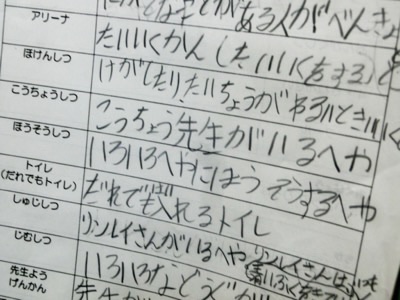 アリーナ
たいいくかん(たいいくをする)
ほけんしつ
けがしたり、たいちょうがわるいときにいく
こうちょうしつ
こうちょう先生がいるへや
ほうそうしつ
いろいろへやにほうそうするへや
トイレ
(だれでもトイレ)
だれでも入れるトイレ
しゅじしつ
リンレイさんがいるへや リンレイさんは
じむしつ
いろいろな
先生よう
げんかん
先生が